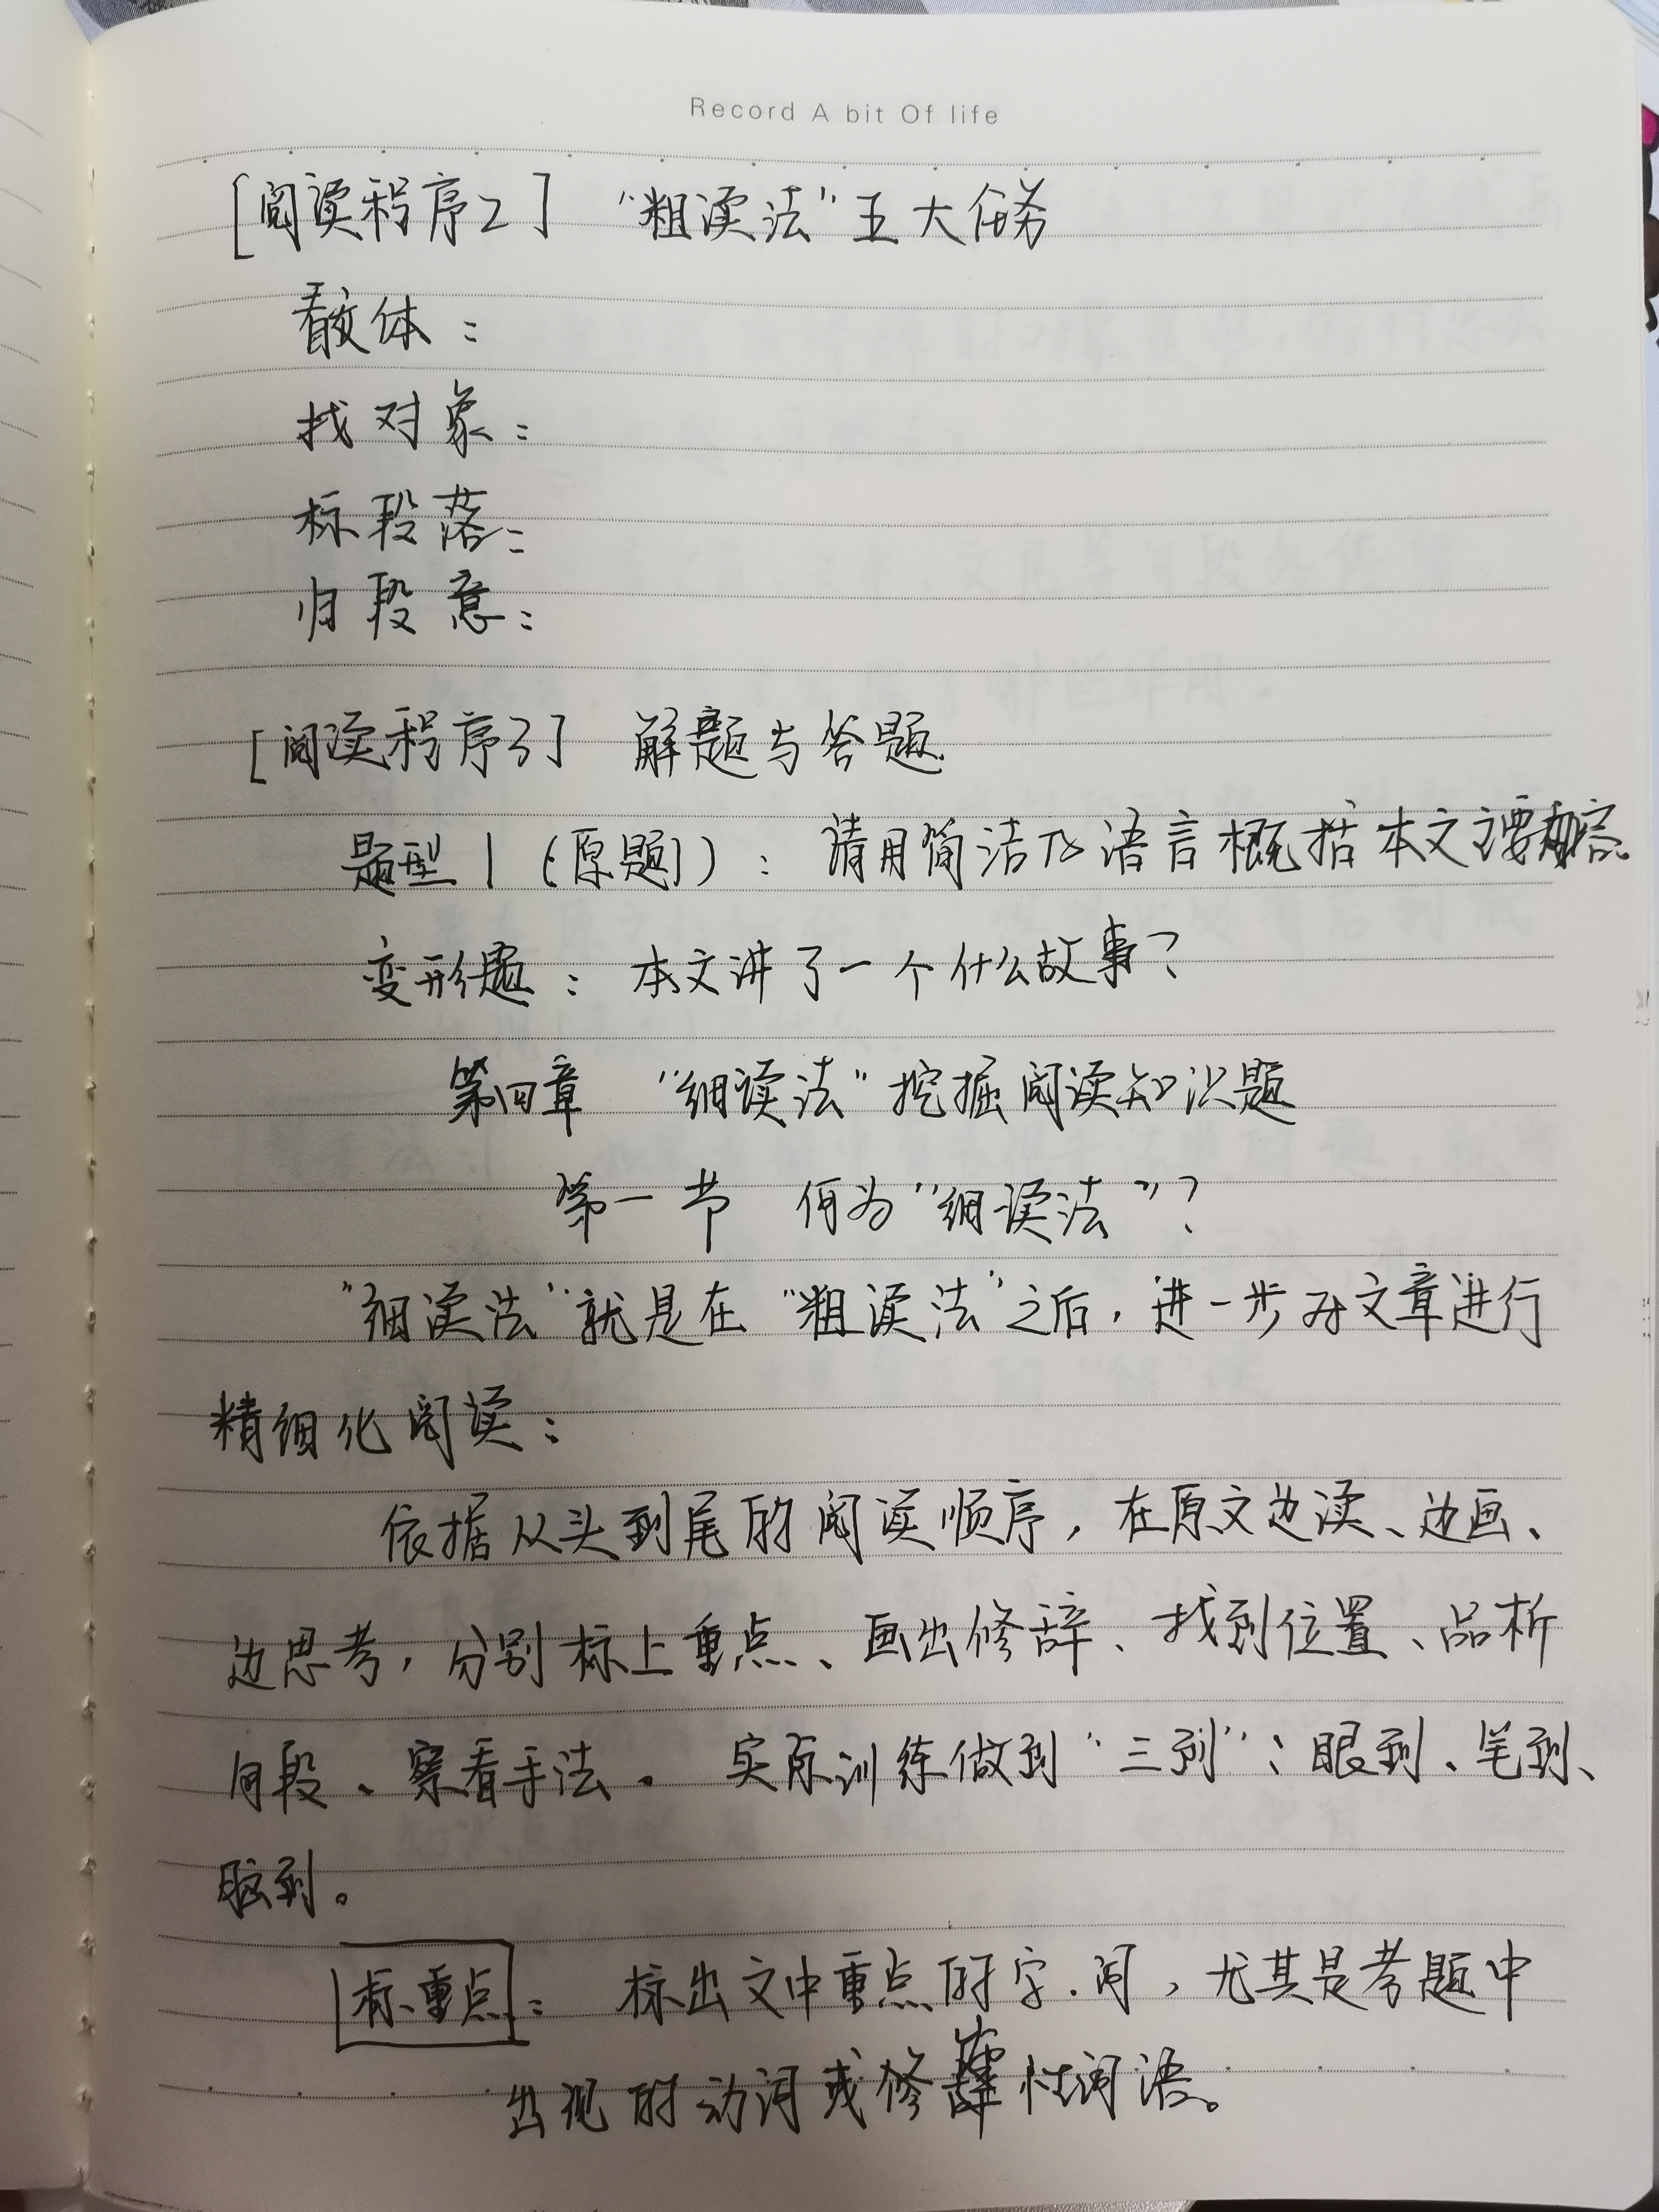 Record A bit Of life
[阅读程序2] “粗读法”五大任务
看文体：
找对象：
标段落：
归段意：
[阅读程序3] 解题与答题.
题型1(原题)：请用简洁的语言概括本文主要内容。
变形题：本文讲了一个什么故事？
第四章 “细读法”挖掘阅读知识题
第一节 何为“细读法”？
“细读法”就是在“粗读法”之后，进一步对文章进行
精细化阅读：
依据从头到尾的阅读顺序，在原文边读、边画、
边思考，分别标上重点、画出修辞、找到位置、品析
句段、察看手法。实际训练做到“三到”：眼到、笔到、
脑到。
标重点：标出文中重点的字.词，尤其是考题中
出现的动词或修辞性词语。